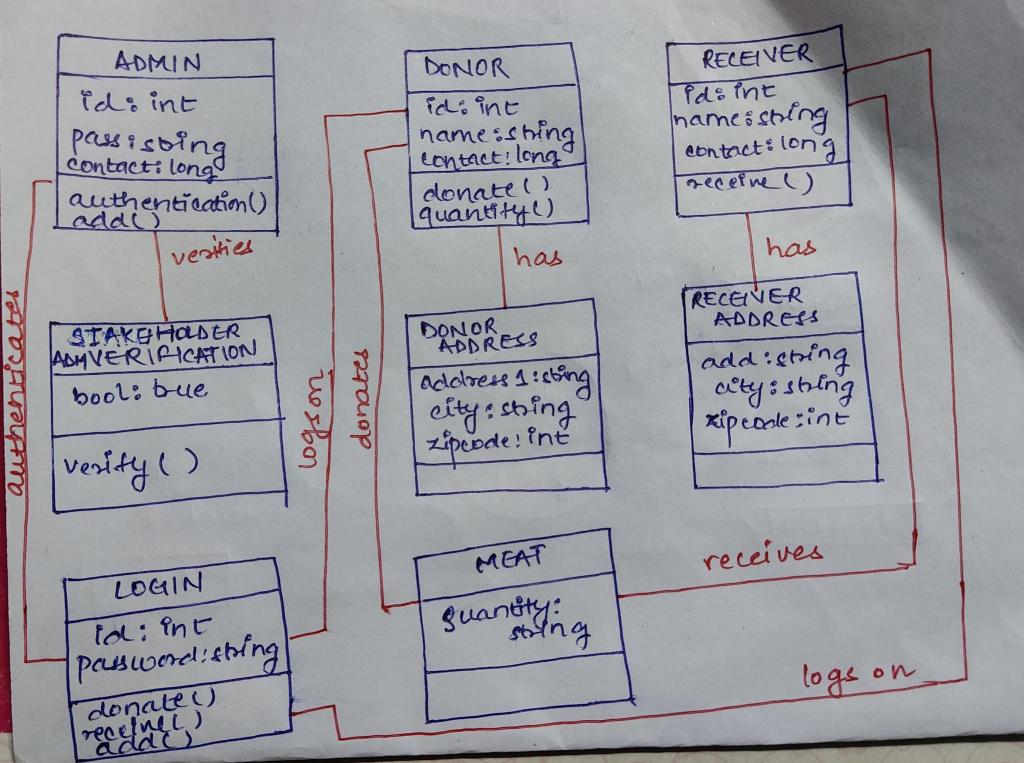 ADMIN
id: int
pass: string
contact: long
authentication()
add()
DONOR
id: int
name: string
contact: long
donate()
quantity()
RECEIVER
id: int
name: string
contact: long
receive()
verifies
has
has
authenticates
logs on
donates
STAKEHOLDER
VERIFICATION
bool: true
verify()
DONOR
ADDRESS
address1: string
city: string
zipcode: int
RECEIVER
ADDRESS
add: string
city: string
zipcode: int
LOGIN
id: int
password: string
donate()
receive()
add()
MEAT
quantity:
string
receives
logs on